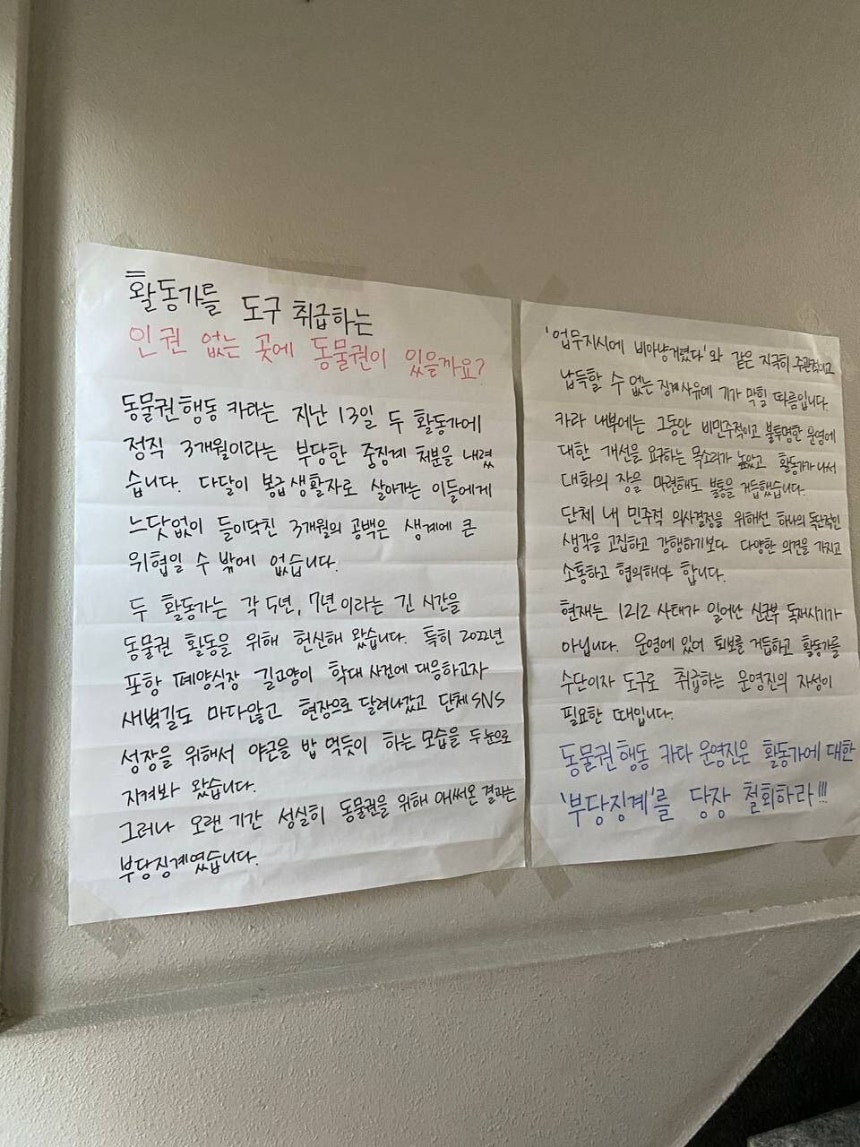 활동가를 도구 취급하는
인권 없는 곳에 동물권이 있을까요?
동물권행동 카라는 지난 13일 두 활동가에
정직 3개월이라는 부당한 중징계 처분을 내렸
습니다. 다달이 봉급생활자로 살아가는 이들에게
느닷없이 들이닥친 3개월의 공백은 생계에 큰
위협일 수 밖에 없습니다.
두 활동가는 각 5년, 7년이라는 긴 시간을
동물권 활동을 위해 헌신해 왔습니다. 특히 2022년
포항 폐양식장 길고양이 학대 사건에 대응하고자
새벽길도 마다않고 현장으로 달려나갔고 단체 SNS
성장을 위해서 야근을 밥 먹듯이 하는 모습을 두 눈으로
지켜봐 왔습니다.
그러나 오랜 기간 성실히 동물권을 위해 애써온 결과는
부당징계였습니다.
'업무지시에 비아냥거렸다'와 같은 지극히 주관적이고
납득할 수 없는 징계사유에 기가 막힐 따름입니다.
카라 내부에는 그동안 비민주적이고 불투명한 운영에
대한 개선을 요구하는 목소리가 높았고 활동가가 나서
대화의 장을 마련해도 불통을 거듭했습니다.
단체 내 민주적 의사결정을 위해선 하나의 독단적인
생각을 고집하고 강행하기보다 다양한 의견을 가지고
소통하고 협의해야 합니다.
현재는 1212 사태가 일어난 신군부 독재시기가
아닙니다. 운영에 있어 퇴보를 거듭하고 활동가를
수단이자 도구로 취급하는 운영진의 자성이
필요한 때입니다.
동물권행동 카라 운영진은 활동가에 대한
'부당징계'를 당장 철회하라!!!